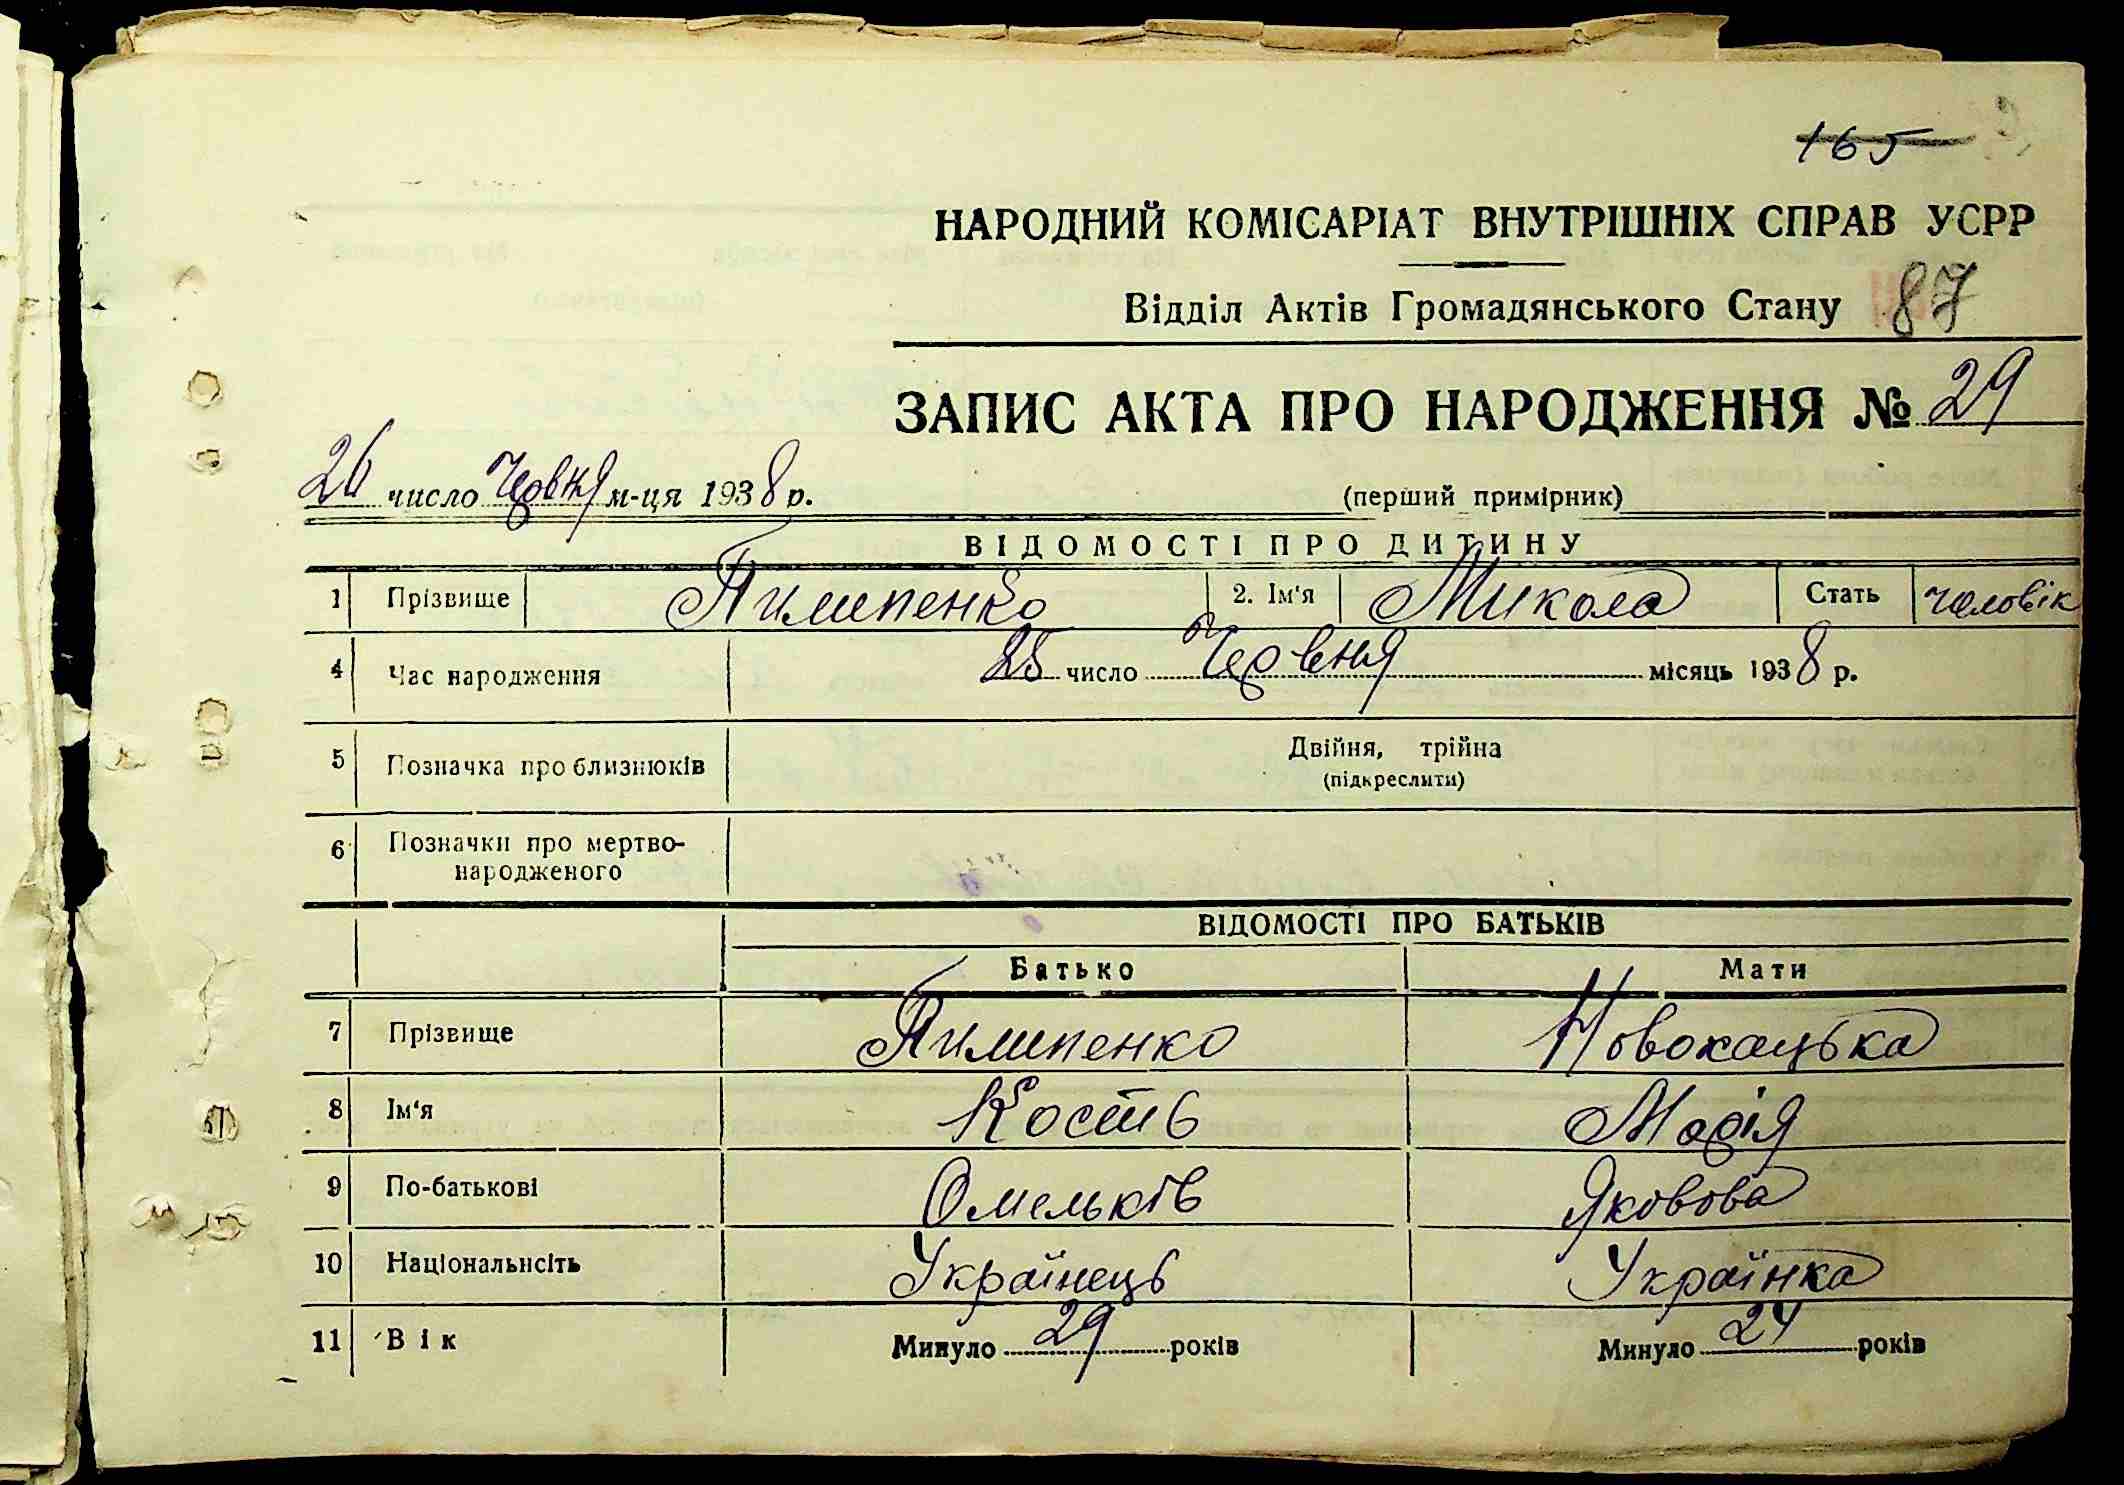 165
НАРОДНИЙ КОМІСАРІАТ ВНУТРІШНІХ СПРАВ УСРР
Відділ Актів Громадянського Стану 87
ЗАПИС АКТА ПРО НАРОДЖЕННЯ № 29
26 число Червня м-ця 1938 р. (перший примірник)
ВІДОМОСТІ ПРО ДИТИНУ
1 Прізвище Пилипенко 2. Ім'я Микола Стать чоловік
4 Час народження 25 число Червня місяць 1938 р.
5 Позначка про близнюків Двійня, трійна
(підкреслити)
6 Позначки про мертво-
народженого
ВІДОМОСТІ ПРО БАТЬКІВ
Батько Мати
7 Прізвище Пилипенко Новохацька
8 Ім'я Кость Марія
9 По-батькові Омельків Яковова
10 Національність Українець Українка
11 Вік Минуло 29 років Минуло 24 років